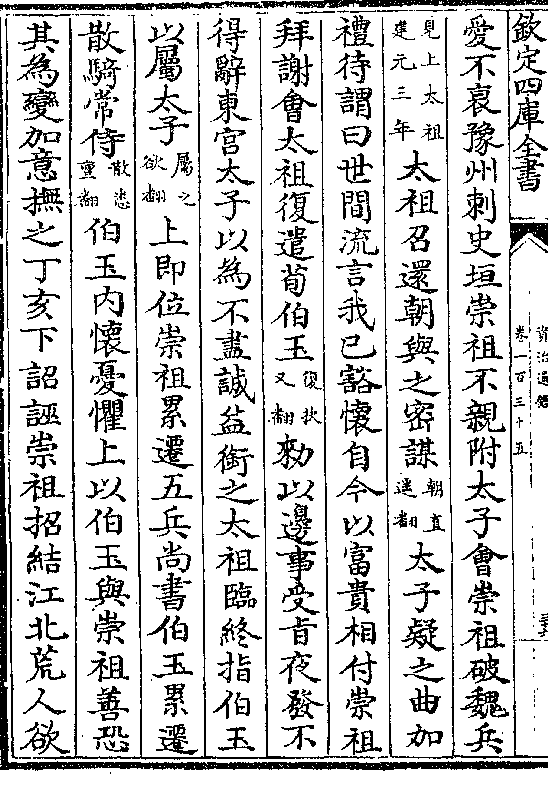 欽定四庫全書
資治通鑑
卷一百三十五
愛不衰豫州刺史垣崇祖不親附太子會崇祖破魏兵
見上太祖建元三年太祖召還朝與之密謀朝直遥翻太子疑之曲加
禮待謂曰世間流言我已豁懷自今以富貴相付崇祖
拜謝會太祖復遣荀伯玉復扶又翻勑以邊事受旨夜發不
得辭東宫太子以為不盡誠益銜之太祖臨終指伯玉
以屬太子屬之欲翻上即位崇祖累遷五兵尚書伯玉累遷
散騎常侍散悉亶翻伯玉内懷憂懼上以伯玉與崇祖善恐
其為變加意撫之丁亥下詔誣崇祖招結江北荒人欲